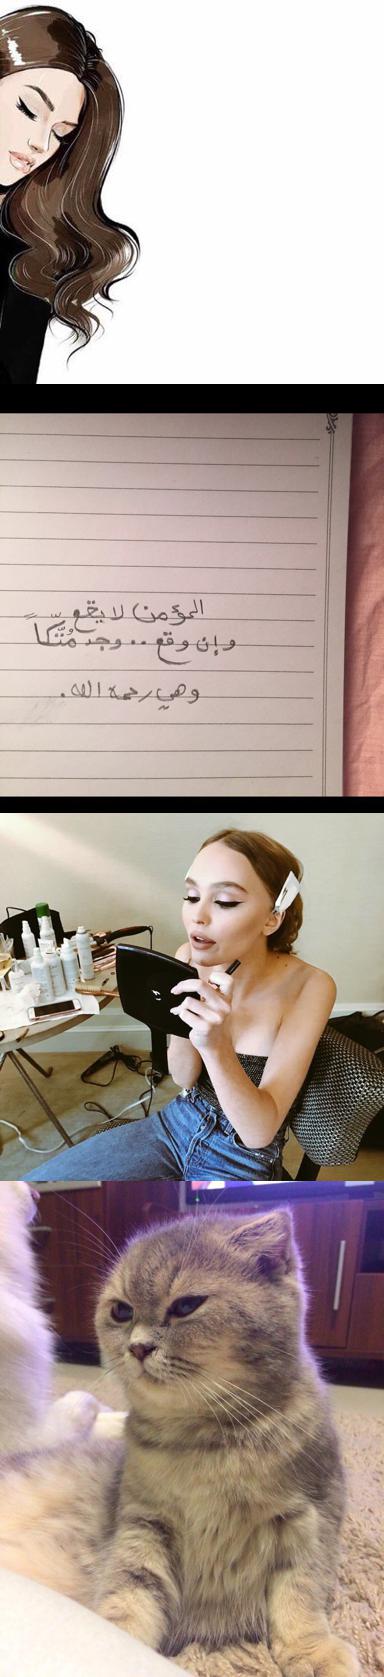 المؤمن لا يقع
وإن وقع .. وجد مُتّكأً
وهي رحمة الله .